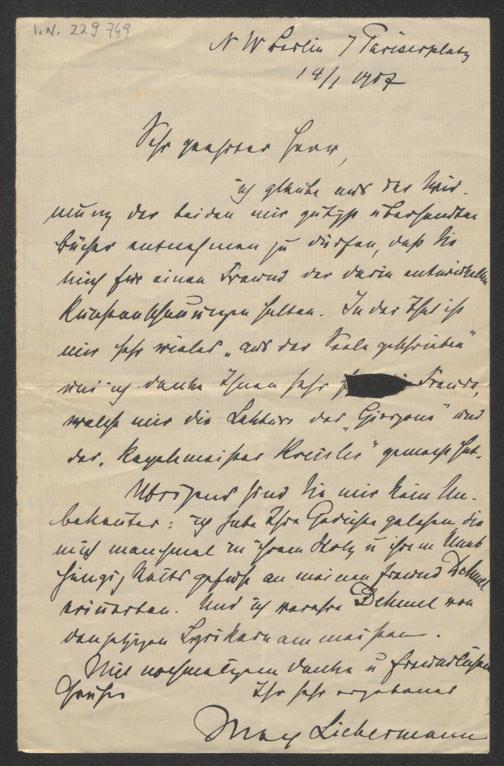 I.N. 229749
N W Berlin 7 Pariserplatz
14/1 1907
Sehr geehrter Herr,
ich glaube aus der Wid-
mung der beiden mir gütigst übersandten
Bücher entnehmen zu dürfen, daß Sie
mich für einen Freund der darin entwickelten
Kunstanschauungen halten. In der That ist
mir sehr vieles „aus der Seele geschrieben"
und ich danke Ihnen sehr für die Freude,
welche mir die Lektüre des „Giorgione" und
des „Kapellmeister Kreisler" gemacht hat.
Übrigens sind Sie mir kein Un-
bekannter: ich habe Ihre Gedichte gelesen, die
mich manchmal in ihrem Stolz u ihrem Unab
hängigkeitsgefühl an meinen Freund Dehmel
erinnerten. Und ich verehre Dehmel von
den jetzigen Lyrikern am meisten.
Mit nochmaligem Danke u freundlichem
Gruße Ihr sehr ergebener
Max Liebermann